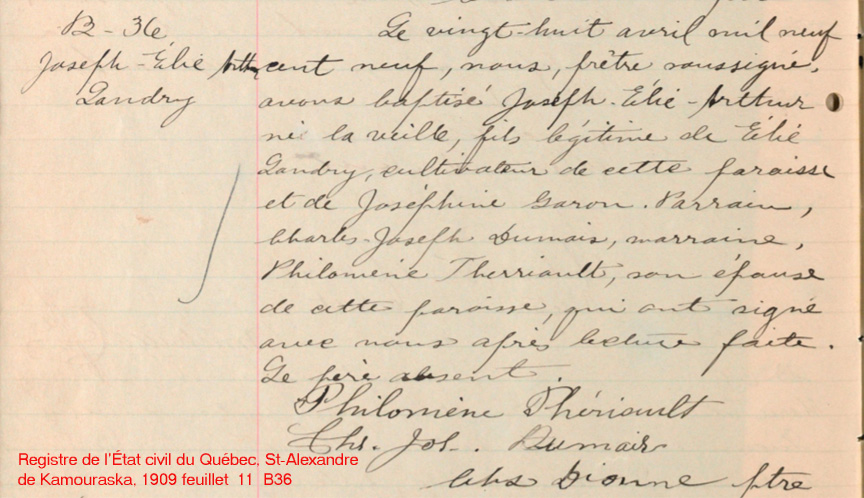 B-36
Joseph-Élie Arthur
Landry
Le vingt-huit avril mil neuf
cent neuf, nous, prêtre soussigné,
avons baptisé Joseph-Élie-Arthur
né la veille, fils légitime de Élie
Landry, cultivateur de cette paroisse
et de Joséphine Garon. Parrain,
Charles-Joseph Dumais, marraine,
Philomène Therriault, son épouse
de cette paroisse, qui ont signé
avec nous après lecture faite.
Le père absent.
Philomène Thériault
Chs. Jos. Dumais
Dionne ptre
Registre de l'État civil du Québec, St-Alexandre
de Kamouraska, 1909 feuillet 11 B36